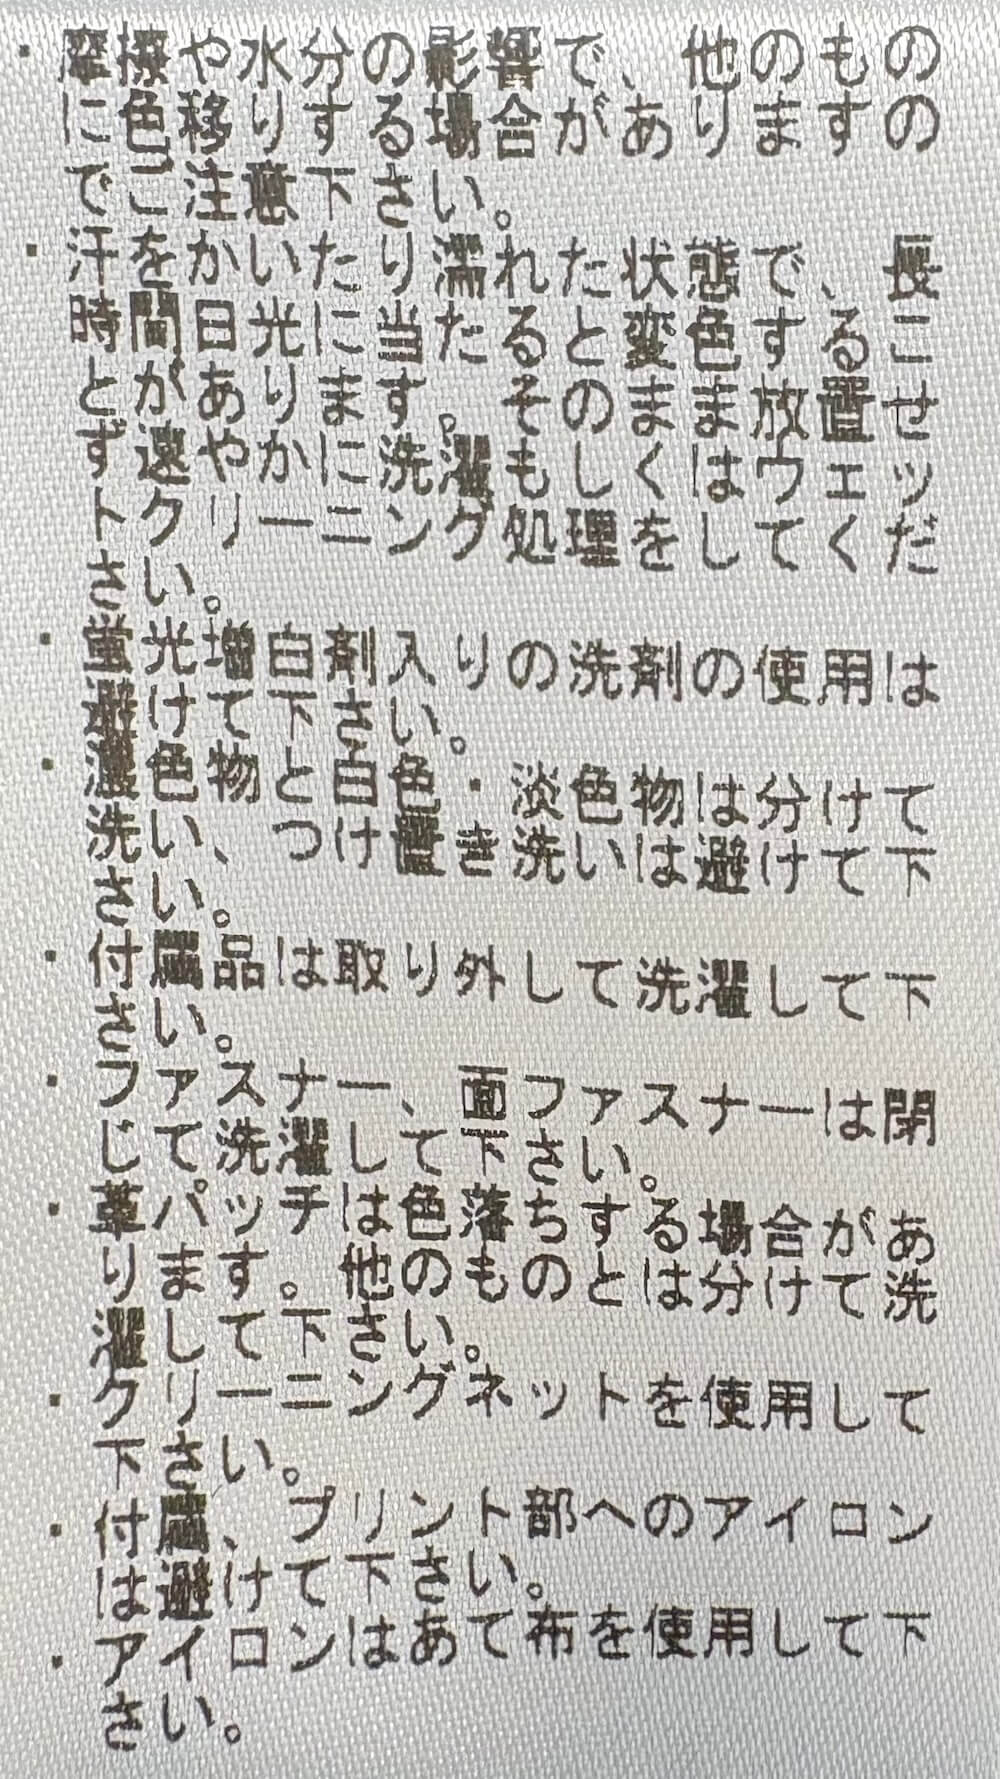 ・摩擦や水分の影響で、他のものの
に色移りする場合がありますの
でご注意下さい。
・汗をかいたり濡れた状態で、長
時間日光に当たると変色するこ
とがあります。そのまま放置せ
ず速やかに洗濯もしくはウェッ
トクリーニング処理をしてくだ
さい。
・蛍光増白剤入りの洗剤の使用は
避けて下さい。
・濃色物と白色・淡色物は分けて
洗い、つけ置き洗いは避けて下
さい。
・付属品は取り外して洗濯して下
さい。
・ファスナー、面ファスナーは閉
じて洗濯して下さい。
・革パッチは色落ちする場合があ
ります。他のものとは分けて洗
濯して下さい。
・クリーニングネットを使用して
下さい。
・付属、プリント部へのアイロン
は避けて下さい。
・アイロンはあて布を使用して下
さい。